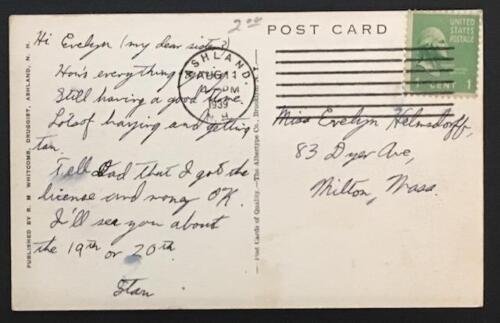 2.00
POST CARD
UNITED STATES
POSTAGE
1 CENT 1
ASHLAND
AUG 11
PM
1939
N.H.
Hi Evelyn (my dear sister)
How's everything
Still having a good time.
Lots of haying and getting
tan.
Tell Dad that I got the
license and money OK.
I'll see you about
the 19th or 20th.
Stan
Miss Evelyn Helmsdorff,
83 Dyer Ave,
Milton, Mass.
PUBLISHED BY R. M. WHITCOMB, DRUGGIST, ASHLAND, N. H.
Post Cards of Quality.—The Albertype Co., Brooklyn